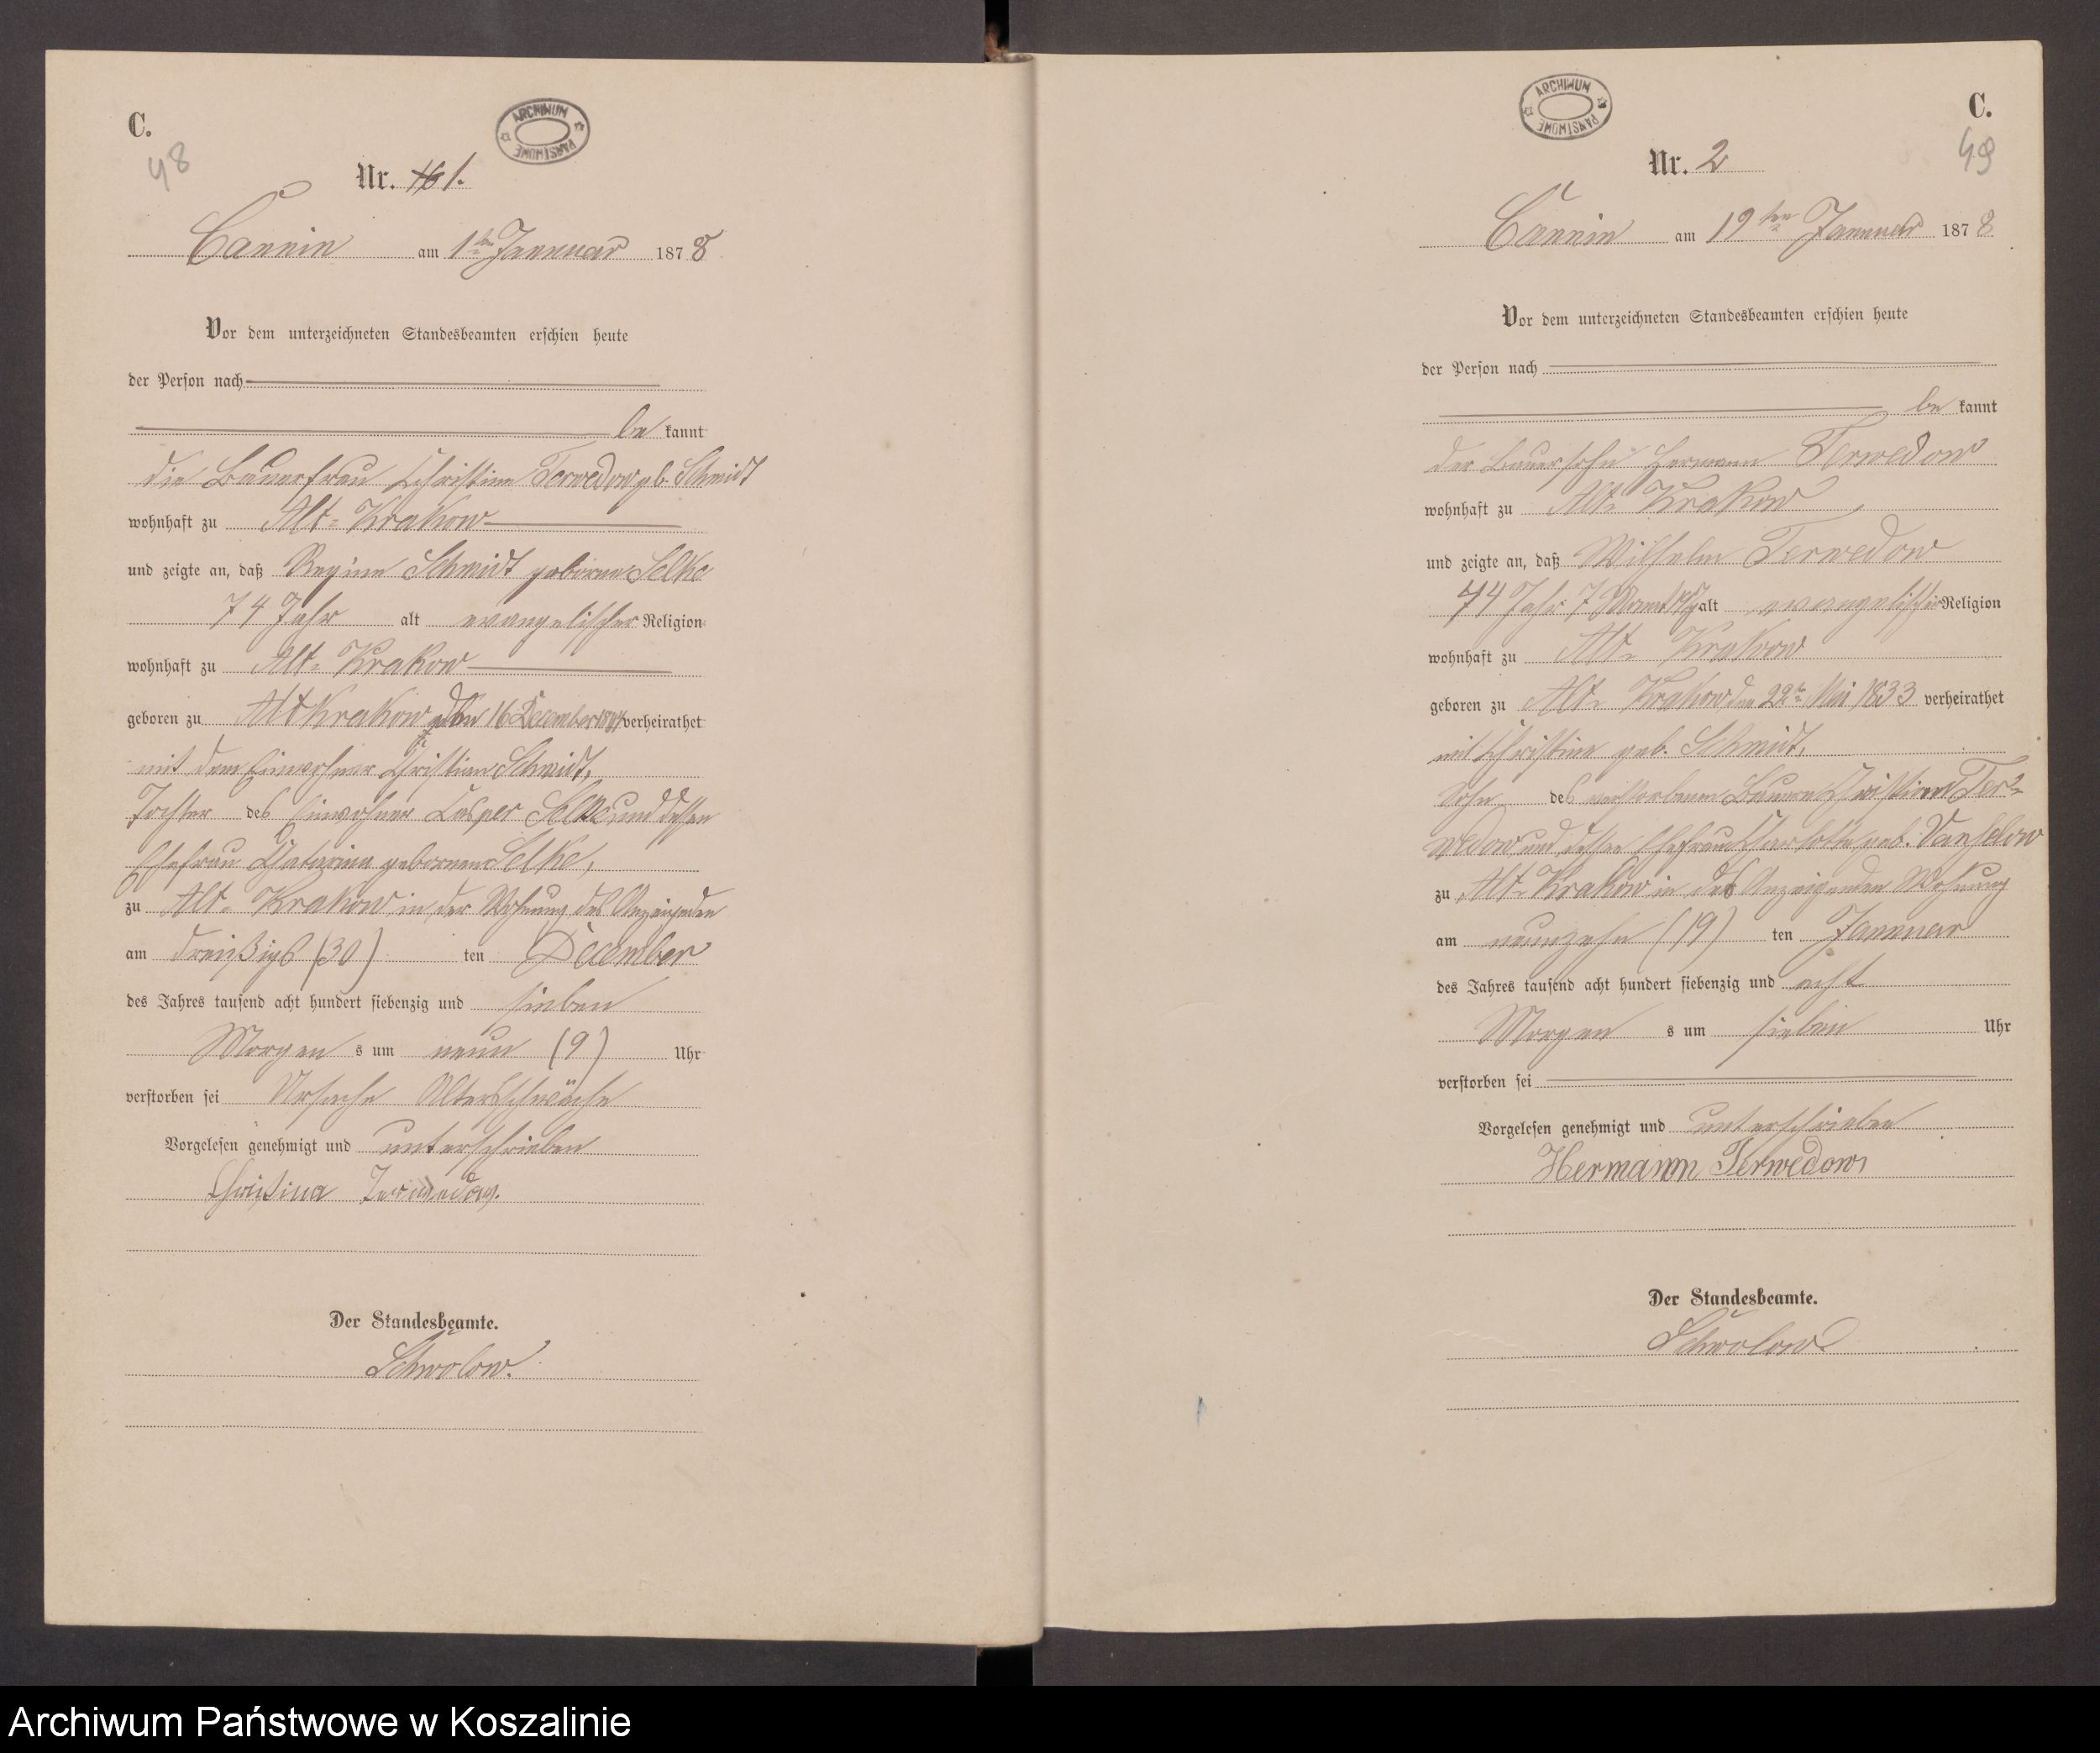 C.
48
ARCHIWUM PAŃSTWOWE
Nr. 1.
Cannin am 1ten Januar 1878
Vor dem unterzeichneten Standesbeamten erschien heute
der Person nach
be kannt
die Bauerfrau Christine Terwedow gb. Schmidt
wohnhaft zu Alt-Krakow
und zeigte an, daß Regine Schmidt geborne Selke
74 Jahr alt evangelischer Religion
wohnhaft zu Alt-Krakow
geboren zu Alt Krakow den 16 December verheirathet
mit dem Einwohner Christian Schmidt,
Tochter des Einwohner Casper Selke und dessen
Ehefrau Catarina gebornen Selke,
zu Alt-Krakow in der Wohnung des Anzeigenden
am dreißigs (30) ten December
des Jahres tausend acht hundert siebenzig und sieben
Morgen s um neun (9) Uhr
verstorben sei Ursache Altersschwäche
Vorgelesen genehmigt und unterschrieben
Christina Terwedow.
Der Standesbeamte.
Schwolow.
C.
49
ARCHIWUM PAŃSTWOWE
Nr. 2
Cannin am 19ten Januar 1878
Vor dem unterzeichneten Standesbeamten erschien heute
der Person nach
be kannt
der Bauersohn Hermann Terwedow
wohnhaft zu Alt-Krakow
und zeigte an, daß Wilhelm Terwedow
44 Jahr 7 Monat alt evangelischer Religion
wohnhaft zu Alt-Krakow
geboren zu Alt-Krakow den 22ten Mai 1833 verheirathet
mit Christine geb. Schmidt,
Sohn des verstorbenen Bauern Christian Ter-
wedow und dessen Ehefrau Charlotte geb. Vanselow
zu Alt-Krakow in des Anzeigenden Wohnung
am neunzehn (19) ten Januar
des Jahres tausend acht hundert siebenzig und acht
Morgen s um sieben Uhr
verstorben sei
Vorgelesen genehmigt und unterschrieben
Hermann Terwedow
Der Standesbeamte.
Schwolow
Archiwum Państwowe w Koszalinie